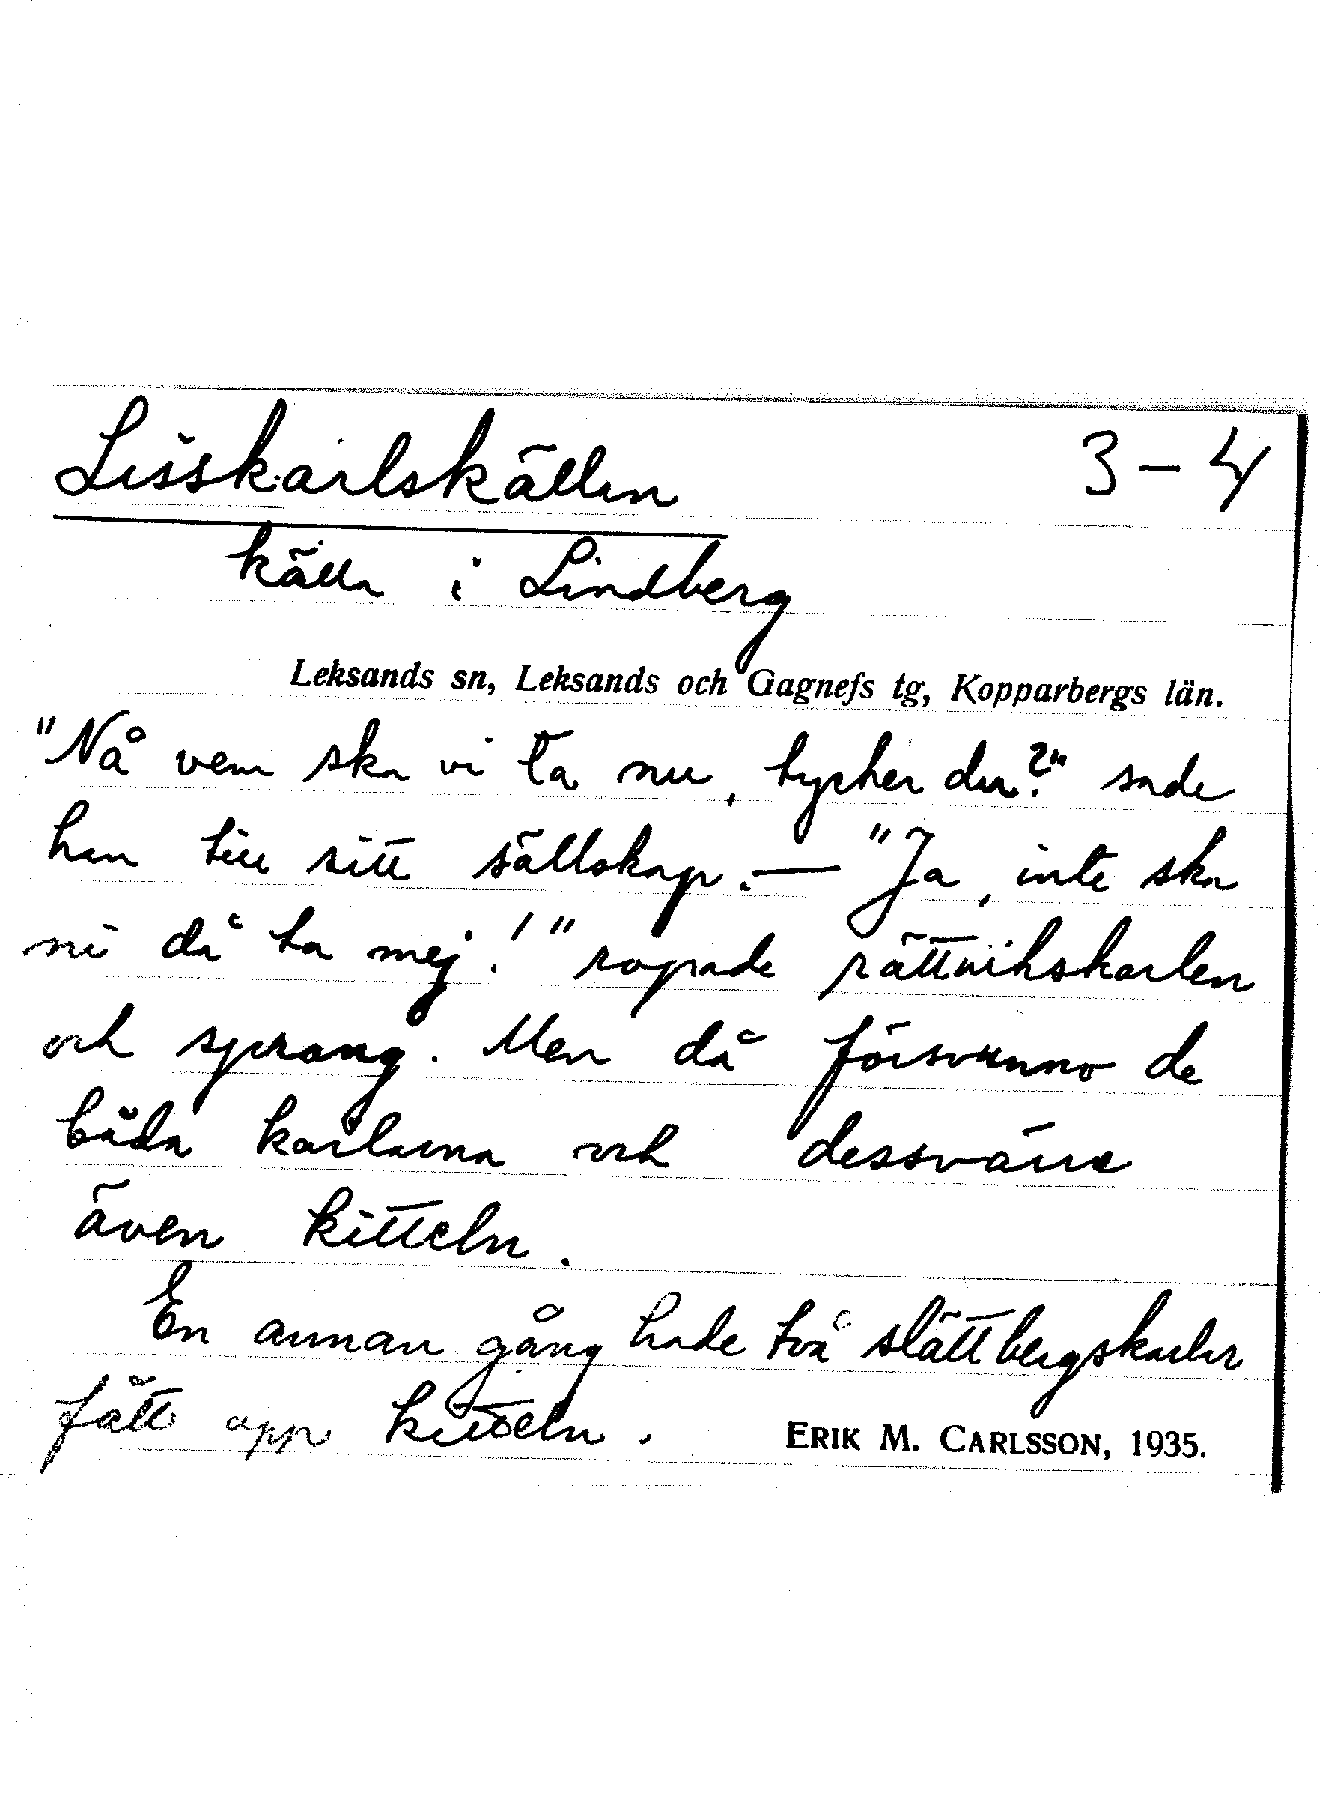 Lisskarlskällen 3-4
källa i Lindberg
Leksands sn, Leksands och Gagnefs tg, Kopparbergs län.
"Nå vem ska vi ta nu, tycker du?" sade
han till sitt sällskap. — "Ja, inte ska
ni då ta mej!" ropade rättvikskarlen
och sprang. Men då försvunno de
båda karlarna och dessvärre
även kitteln.
En annan gång hade två slättbergskarlar
fått opp kitteln. ERIK M. CARLSSON, 1935.